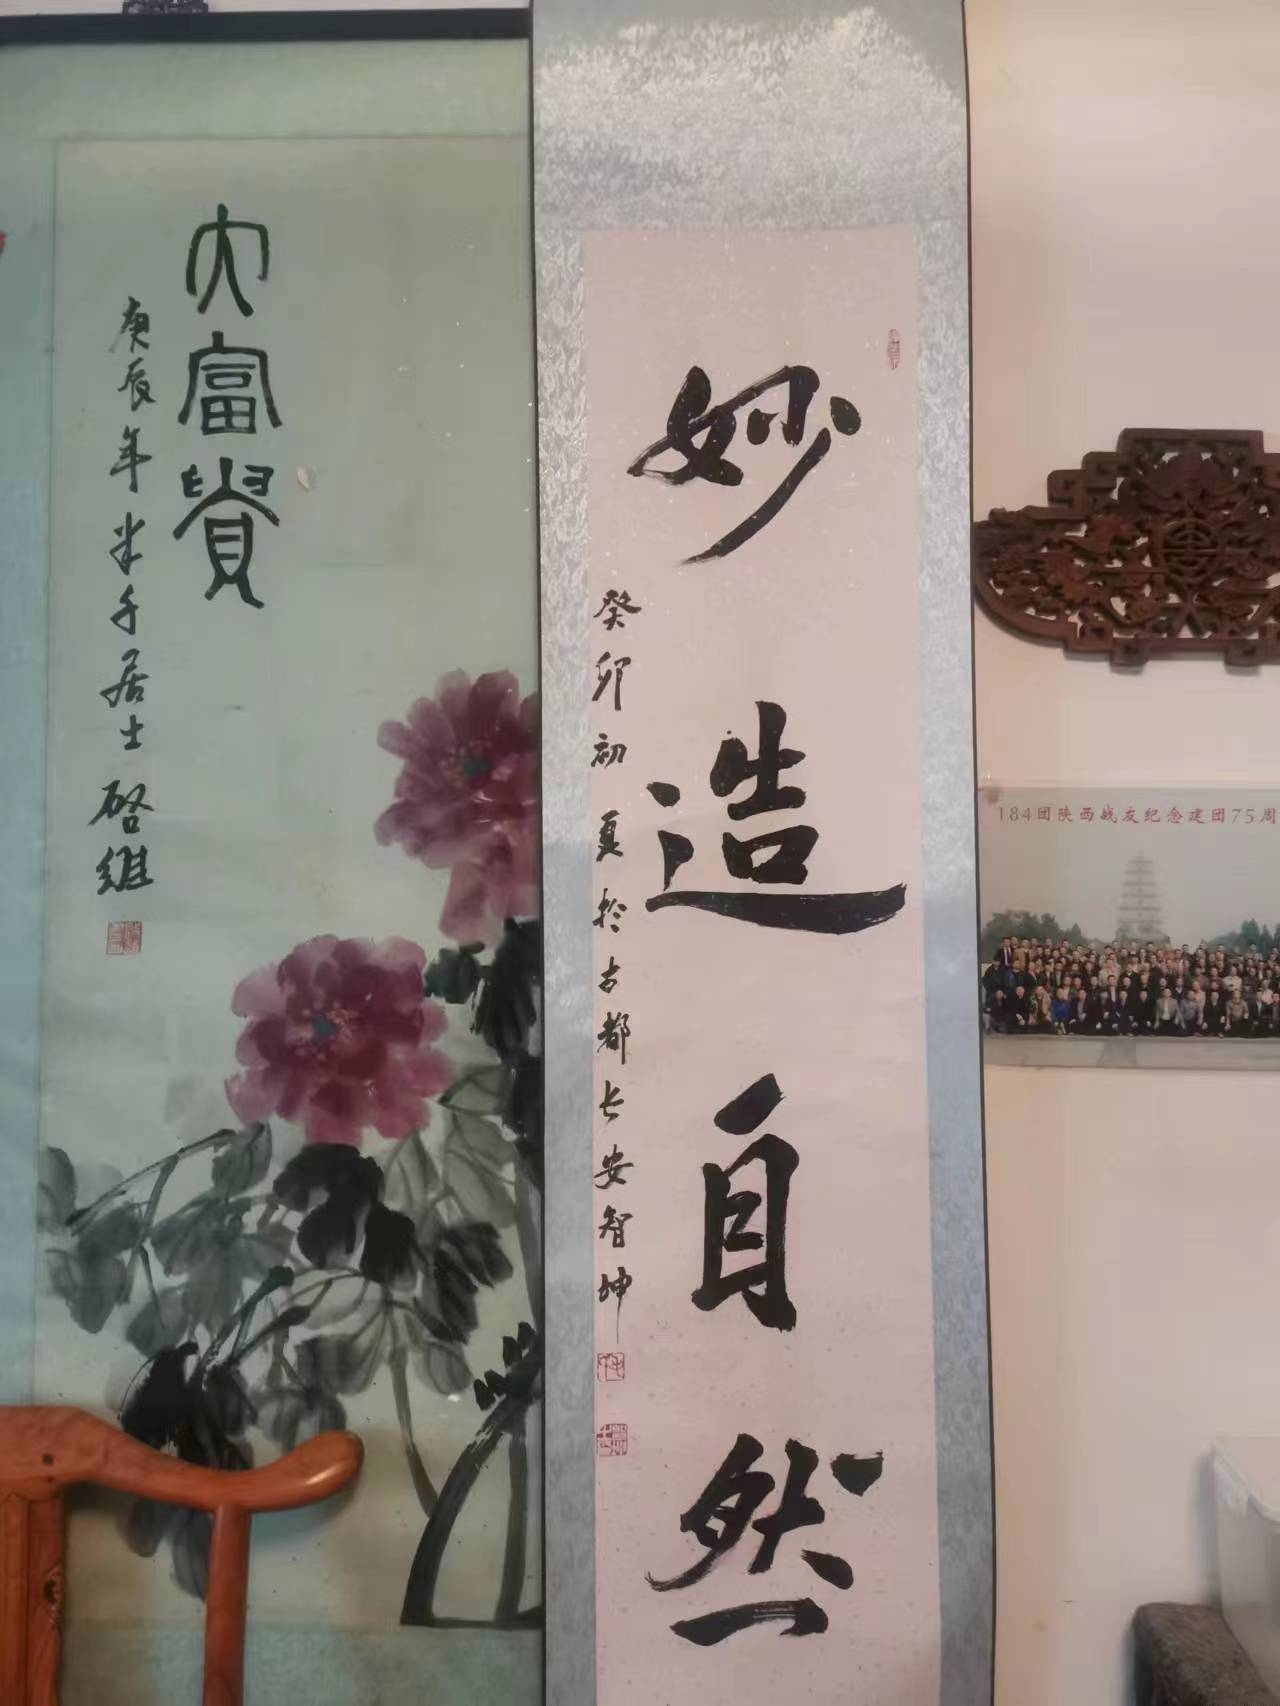 大富贵
庚辰年半千居士启继
妙造自然
癸卯初夏於古都长安智坤
184团陕西战友纪念建团75周